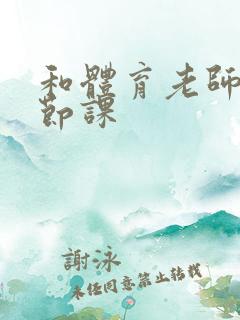 和體育老師
節課
謝泳
未經同意禁止轉載